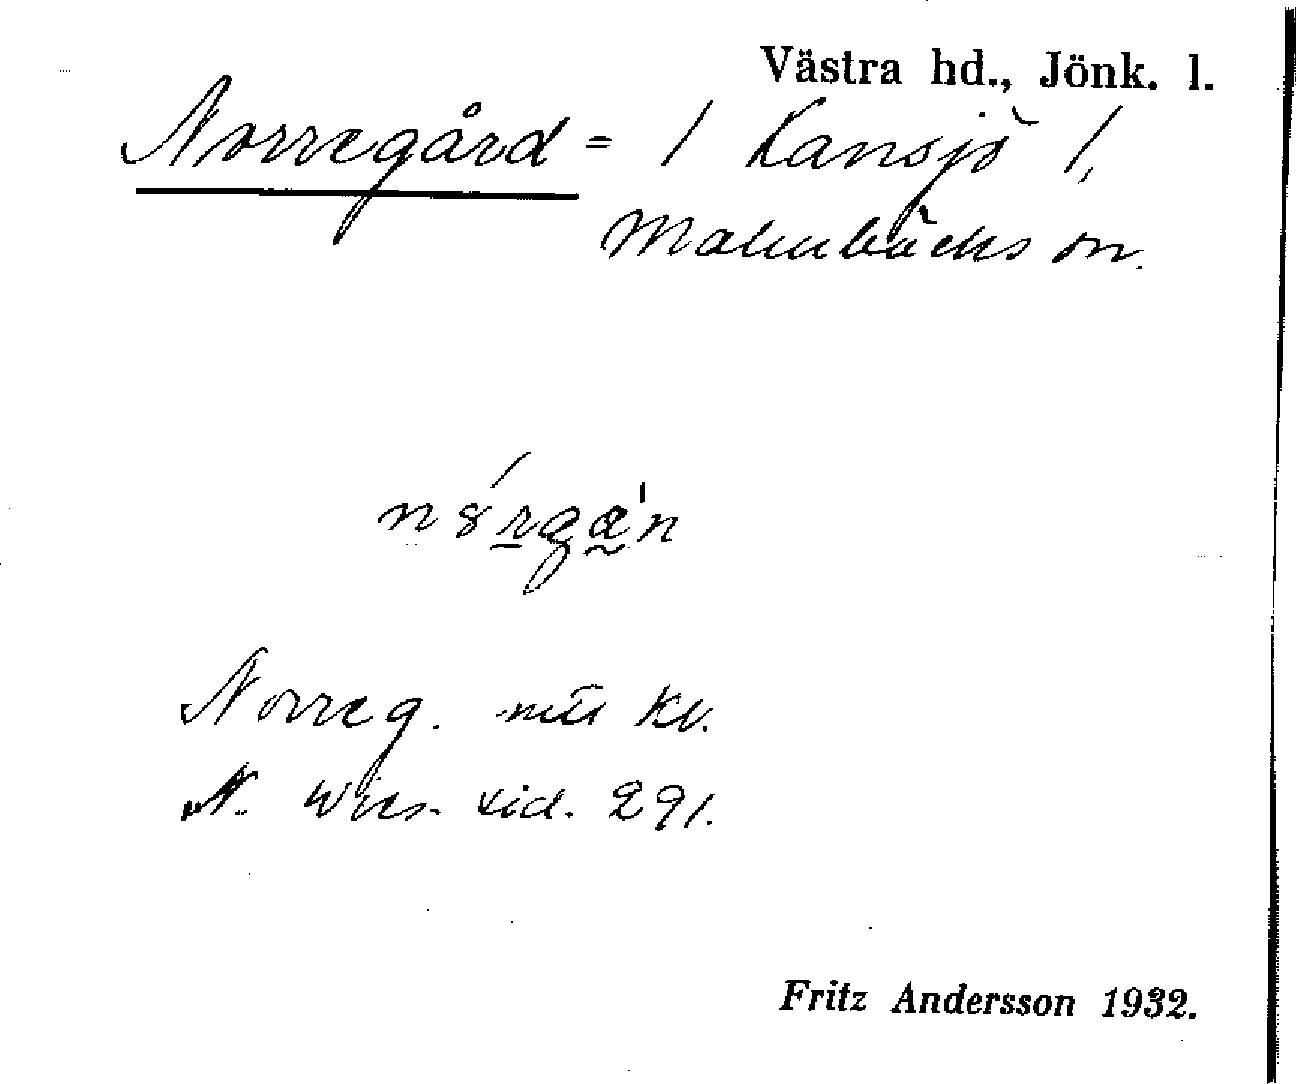 Västra hd., Jönk. l.
Norregård = 1 Kansjö 1,
Malmbäcks sn.
Norreg. mtl kv.
N. Wies. sid. 291.
Fritz Andersson 1932.